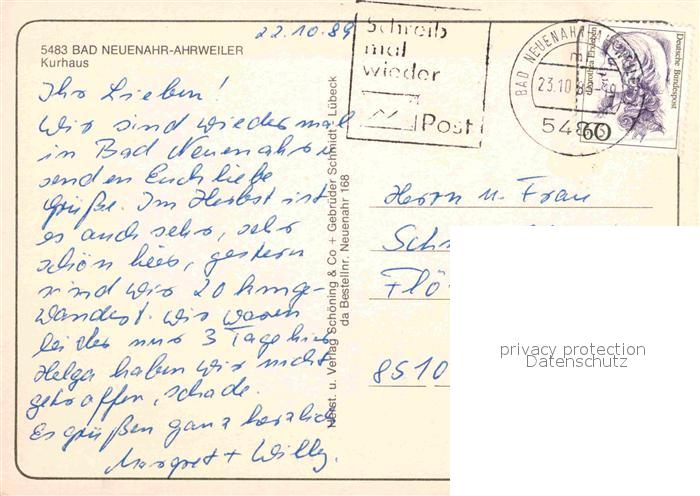 22.10.89
5483 BAD NEUENAHR-AHRWEILER
Kurhaus
Ihr Lieben!
Wir sind wieder mal
in Bad Neuenahr u
senden Euch liebe
Grüße. Im Herbst ist
es auch sehr, sehr
schön hier, gestern
sind wir 20 km ge-
wandert. Wir waren
leider nur 3 Tage hier
Helga haben wir nicht
getroffen, schade.
Es grüßen ganz herzlich
Margret + Willy.
Herst. u. Verlag Schöning & Co + Gebrüder Schmidt - Lübeck
da Bestellnr. Neuenahr 168
Schreib
mal
wieder
Post
BAD NEUENAHR-AHRWEILER
23.10.89
548
Deutsche Bundespost
60
Herrn u. Frau
Sch
Flö
8510
privacy protection
Datenschutz